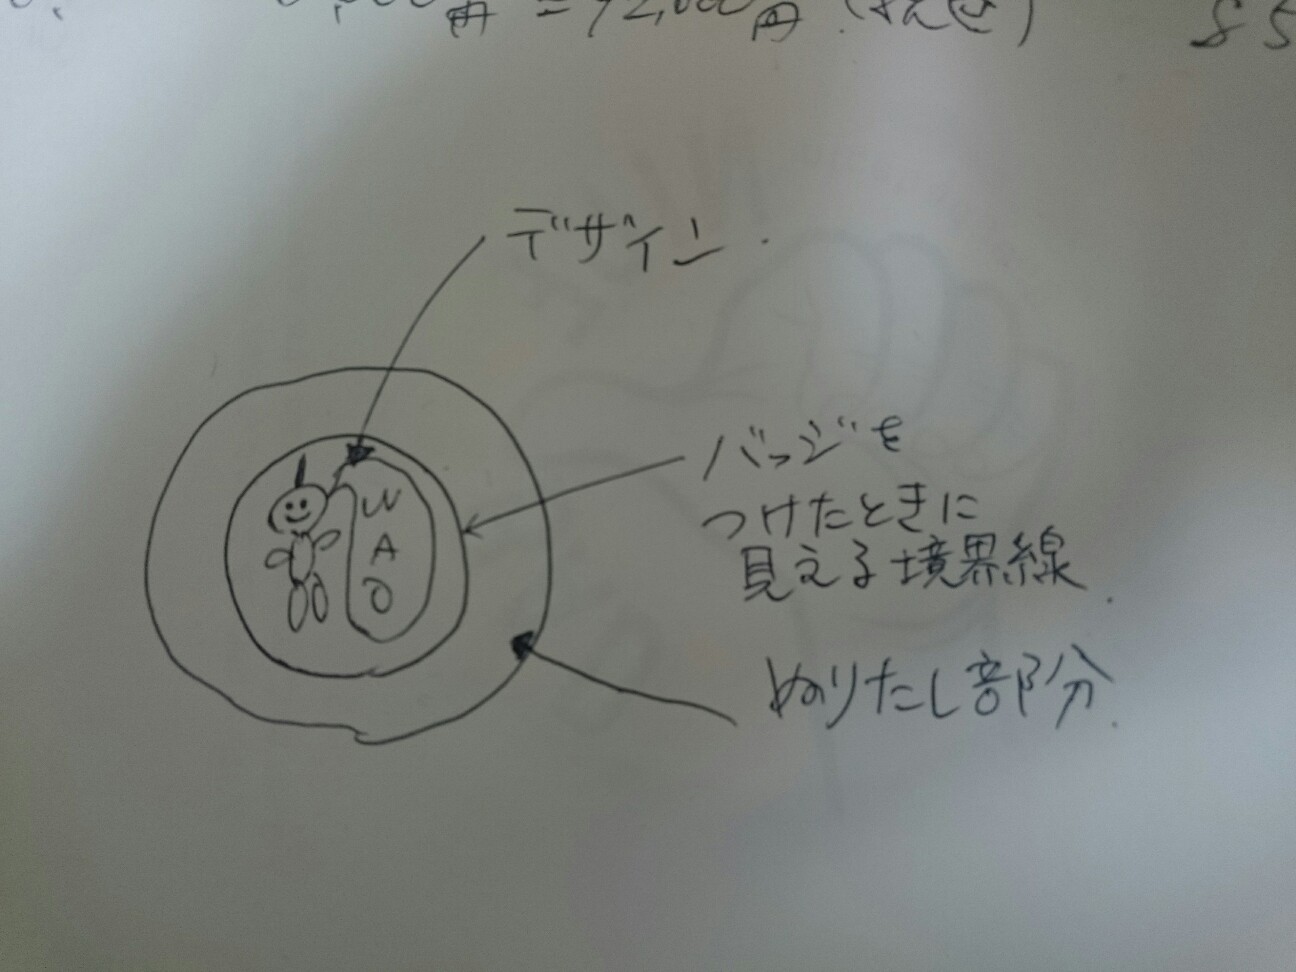 円 = 92,000円
85
デザイン.
バッジを
つけたときに
見える境界線.
W
A
O
ぬりたし部分.